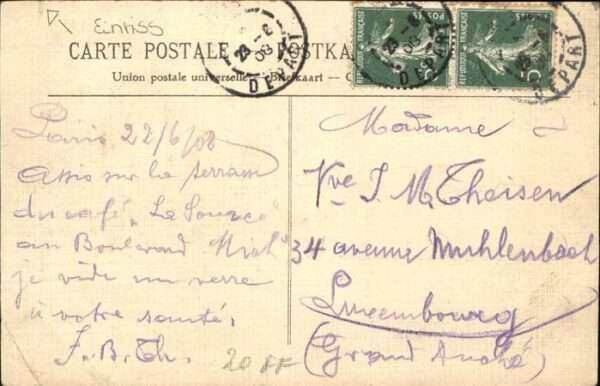 Eintiss
CARTE POSTALE POSTKA
Union postale universelle Briefkaart
23 - 6
08
DEPART
POSTES
FRANÇAISE
5
23 - 6
DEPART
FRANÇAISE
5
Paris 22/6/08
Assis sur la terrasse
du café "La Source"
au Boulevard Mich"
je vide un verre
à votre santé,
J. B. Th.
20 FF
Madame
Vve J. M. Theisen
34 avenue Muhlenbach
Luxembourg
(Grand Duché)